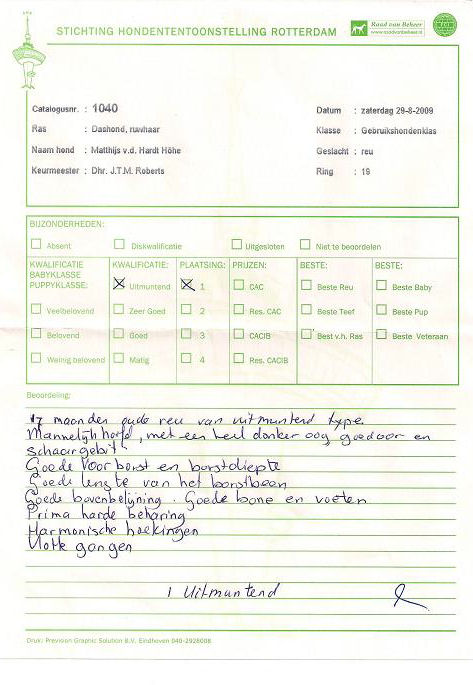 STICHTING HONDENTENTOONSTELLING ROTTERDAM
Raad van Beheer
www.raadvanbeheer.nl
FCI
Catalogusnr. : 1040
Datum : zaterdag 29-8-2009
Ras : Dashond, ruwhaar
Klasse : Gebruikshondenklas
Naam hond : Matthijs v.d. Hardt Höhe
Geslacht : reu
Keurmeester : Dhr. J.T.M. Roberts
Ring : 19
BIJZONDERHEDEN:
Absent Diskwalificatie Uitgesloten Niet te beoordelen
KWALIFICATIE BABYKLASSE PUPPYKLASSE:
Veelbelovend
Belovend
Weinig belovend
KWALIFICATIE:
Uitmuntend
Zeer Goed
Goed
Matig
PLAATSING:
1
2
3
4
PRIJZEN:
CAC
Res. CAC
CACIB
Res. CACIB
BESTE:
Beste Reu
Beste Teef
Best v.h. Ras
BESTE:
Beste Baby
Beste Pup
Beste Veteraan
Beoordeling:
17 maanden oude reu van uitmuntend type
Mannelijk hoofd, met een heel donker oog, goed oor en
schaargebit
Goede voorborst en borstdiepte
Goede lengte van het borstbeen
Goede bovenbelijning. Goede bone en voeten
Prima harde beharing
Harmonische hoekingen
Vlotte gangen
1 Uitmuntend
Druk: Prevision Graphic Solution B.V. Eindhoven 040-2928008